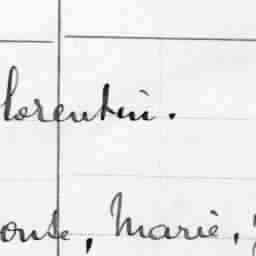 lorentin.
onse, Marie,